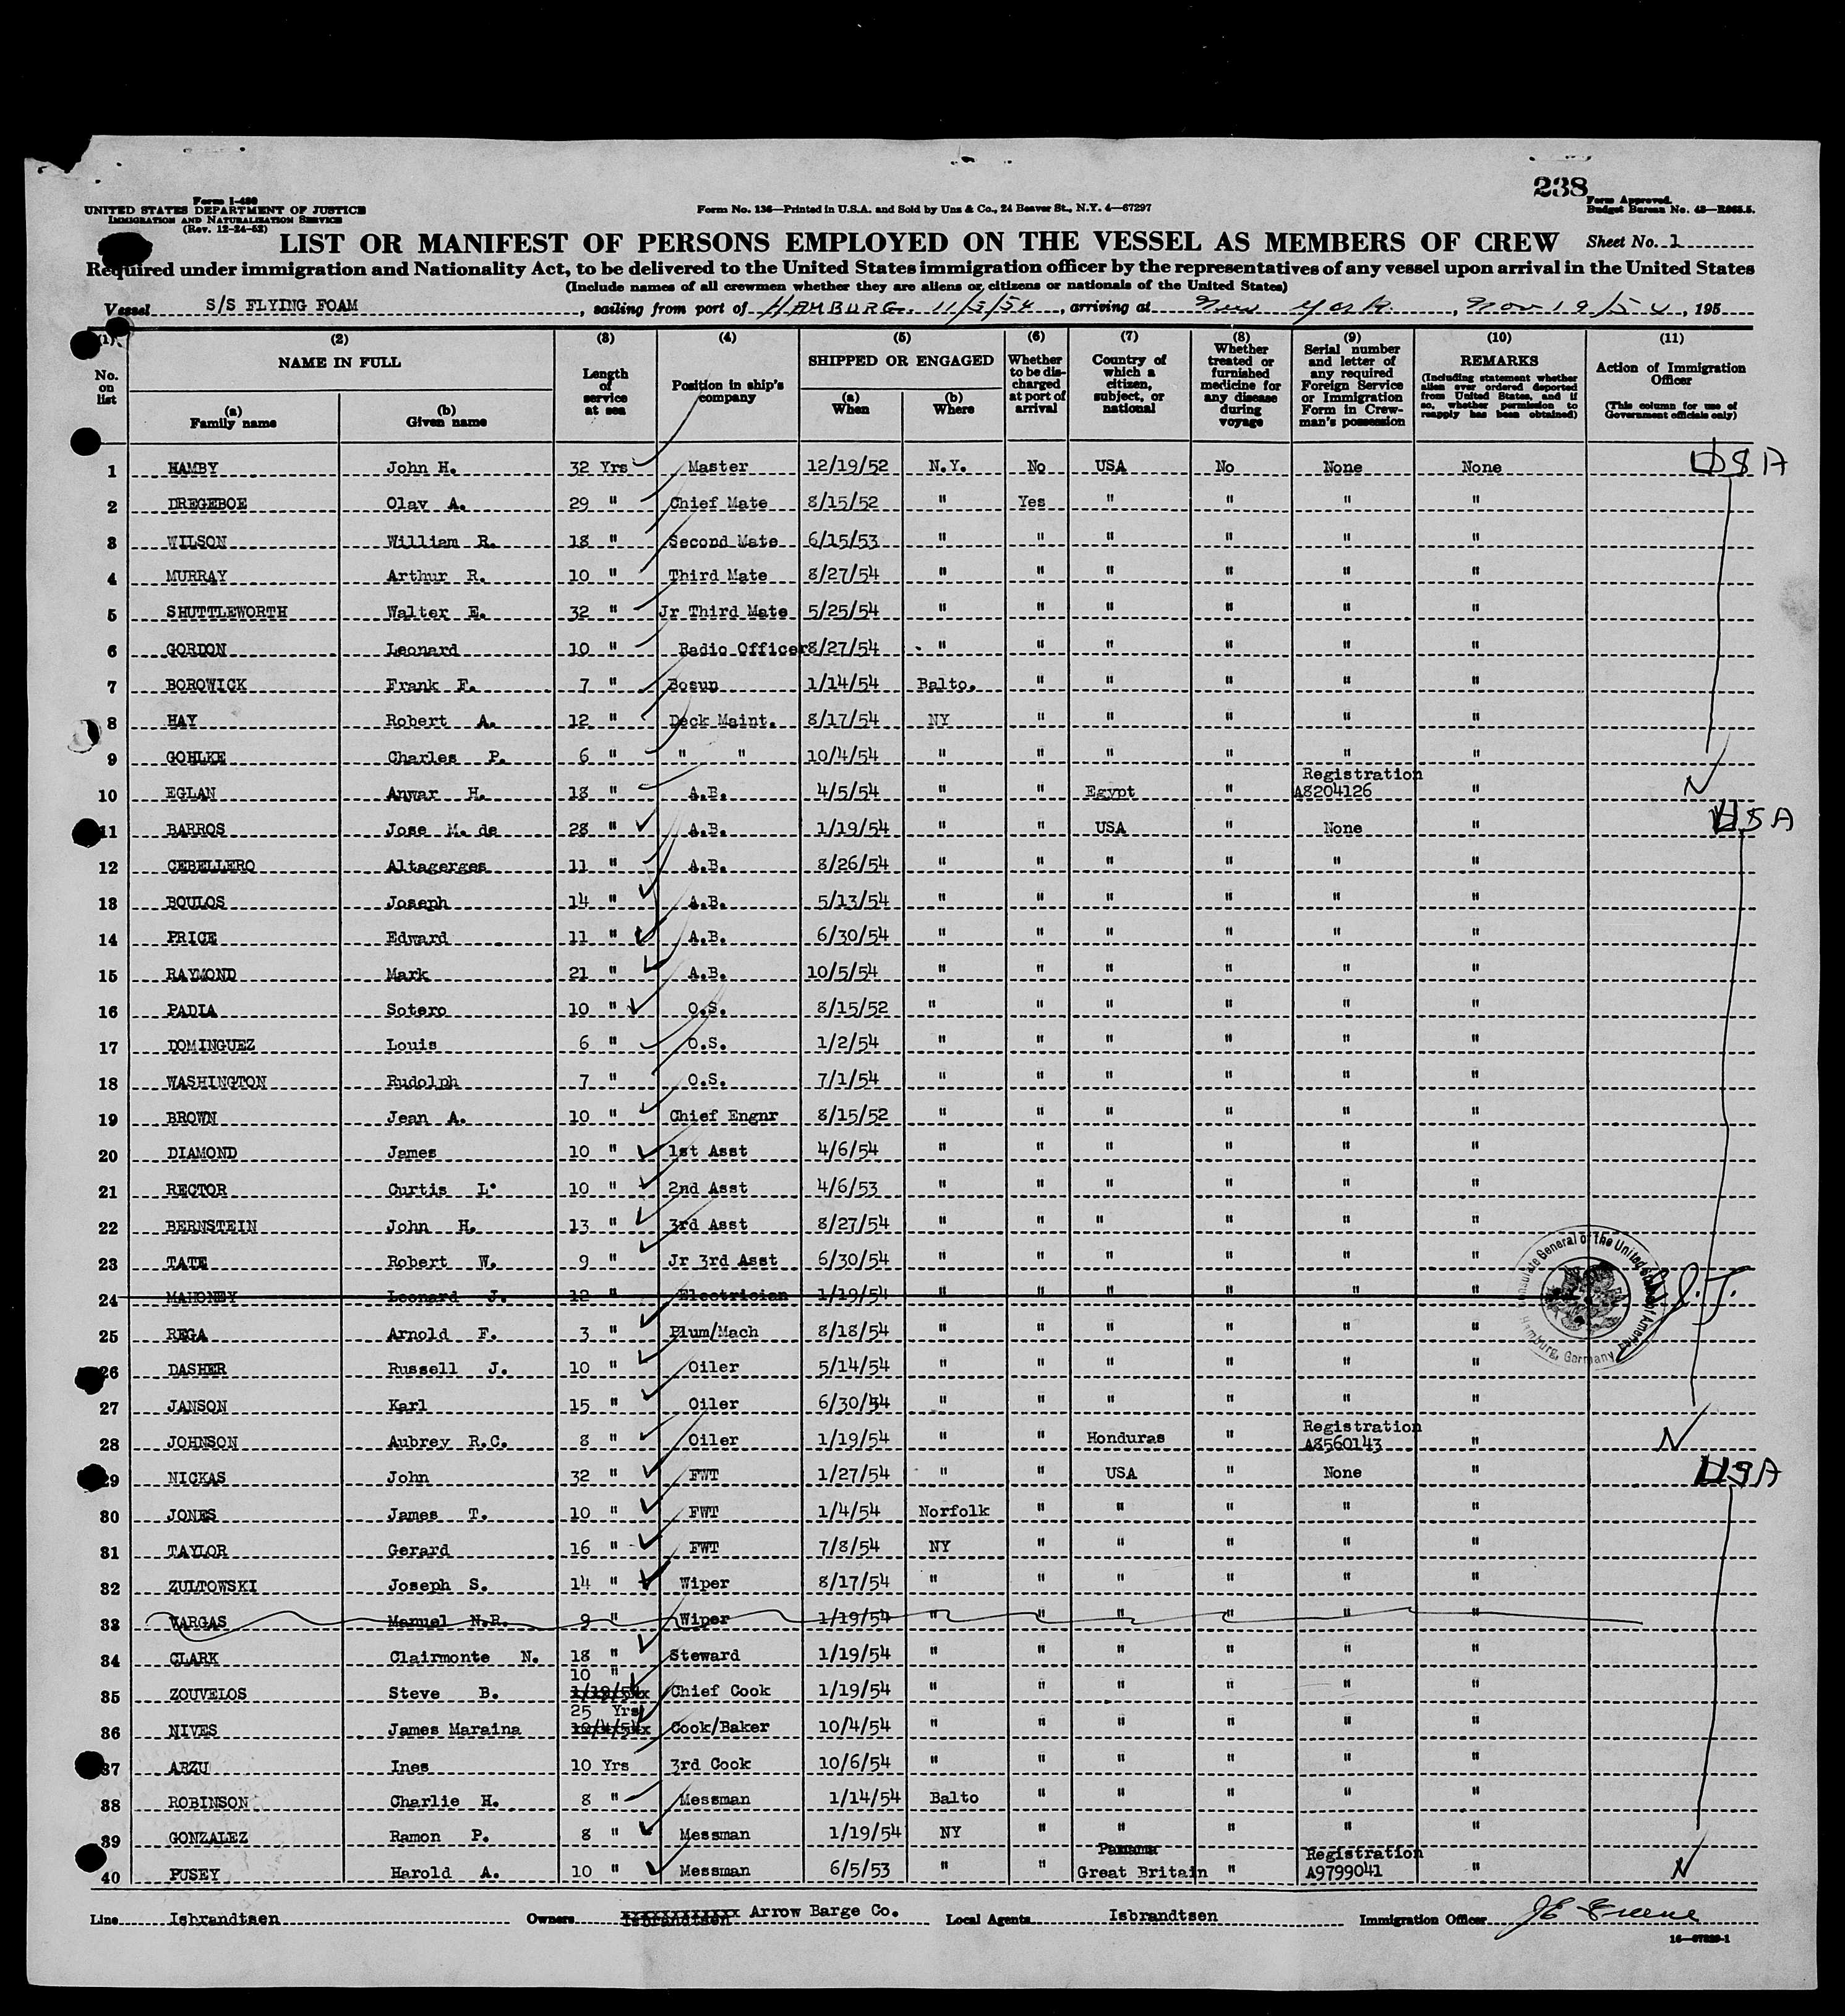 238
Form I-480
UNITED STATES DEPARTMENT OF JUSTICE
IMMIGRATION AND NATURALIZATION SERVICE
(Rev. 12-24-52)
Form No. 136—Printed in U.S.A. and Sold by Unz & Co., 24 Beaver St., N.Y. 4—67297
Form Approved.
Budget Bureau No. 43—R065.5.
LIST OR MANIFEST OF PERSONS EMPLOYED ON THE VESSEL AS MEMBERS OF CREW Sheet No. 1
Required under immigration and Nationality Act, to be delivered to the United States immigration officer by the representatives of any vessel upon arrival in the United States
(Include names of all crewmen whether they are aliens or citizens or nationals of the United States)
Vessel S/S FLYING FOAM, sailing from port of HAMBURG 11/5/54, arriving at New York, Nov 19/54, 195
(1) (2) (3) (4) (5) (6) (7) (8) (9) (10) (11)
No. on list
NAME IN FULL
(a) Family name
(b) Given name
Length of service at sea
Position in ship's company
SHIPPED OR ENGAGED
(a) When
(b) Where
Whether to be discharged at port of arrival
Country of which a citizen, subject, or national
Whether treated or furnished medicine for any disease during voyage
Serial number and letter of any required Foreign Service or Immigration Form in Crewman's possession
REMARKS
(Including statement whether alien ever ordered deported from United States, and if so, whether permission to reapply has been obtained)
Action of Immigration Officer
(This column for use of Government officials only)
1 HAMBY John H. 32 Yrs Master 12/19/52 N.Y. No USA No None None USA
2 DREGEBOE Olav A. 29 " Chief Mate 8/15/52 " Yes " " " "
3 WILSON William R. 18 " Second Mate 6/15/53 " " " " " "
4 MURRAY Arthur R. 10 " Third Mate 8/27/54 " " " " " "
5 SHUTTLEWORTH Walter E. 32 " Jr Third Mate 5/25/54 " " " " " "
6 GORDON Leonard 10 " Radio Officer 8/27/54 " " " " " "
7 BOROWICK Frank F. 7 " Bosun 1/14/54 Balto. " " " " "
8 HAY Robert A. 12 " Deck Maint. 8/17/54 NY " " " " "
9 GOHLKE Charles P. 6 " " " 10/4/54 " " " " " "
10 EGLAN Anwar H. 18 " A.B. 4/5/54 " " Egypt " Registration A8204126 " N
11 BARROS Jose M. de 28 " A.B. 1/19/54 " " USA " None " USA
12 CEBELLERO Altagerges 11 " A.B. 8/26/54 " " " " " "
13 BOULOS Joseph 14 " A.B. 5/13/54 " " " " " "
14 PRICE Edward 11 " A.B. 6/30/54 " " " " " "
15 RAYMOND Mark 21 " A.B. 10/5/54 " " " " " "
16 PADIA Sotero 10 " O.S. 8/15/52 " " " " " "
17 DOMINGUEZ Louis 6 " O.S. 1/2/54 " " " " " "
18 WASHINGTON Rudolph 7 " O.S. 7/1/54 " " " " " "
19 BROWN Jean A. 10 " Chief Engnr 8/15/52 " " " " " "
20 DIAMOND James 10 " 1st Asst 4/6/54 " " " " " "
21 RECTOR Curtis L. 10 " 2nd Asst 4/6/53 " " " " " "
22 BERNSTEIN John H. 13 " 3rd Asst 8/27/54 " " " " " "
23 TATE Robert W. 9 " Jr 3rd Asst 6/30/54 " " " " " "
24 MAHONEY Leonard J. 12 " Electrician 1/19/54 " " " " " "
Consulate General of the United States of America Hamburg, Germany
25 REGA Arnold F. 3 " Plum/Mach 8/18/54 " " " " " "
26 DASHER Russell J. 10 " Oiler 5/14/54 " " " " " "
27 JANSON Karl 15 " Oiler 6/30/54 " " " " " "
28 JOHNSON Aubrey R.C. 8 " Oiler 1/19/54 " " Honduras " Registration A8560143 " N
29 NICKAS John 32 " FWT 1/27/54 " " USA " None " USA
30 JONES James T. 10 " FWT 1/4/54 Norfolk " " " " "
31 TAYLOR Gerard 16 " FWT 7/8/54 NY " " " " "
32 ZULTOWSKI Joseph S. 14 " Wiper 8/17/54 " " " " " "
33 VARGAS Manuel N.R. 9 " Wiper 1/19/54 " " " " " "
34 CLARK Clairmonte N. 18 " Steward 1/19/54 " " " " " "
35 ZOUVELOS Steve B. 10 " 1/19/54x Chief Cook 1/19/54 " " " " " "
36 NIVES James Maraina 25 Yrs 10/4/54x Cook/Baker 10/4/54 " " " " " "
37 ARZU Ines 10 Yrs 3rd Cook 10/6/54 " " " " " "
38 ROBINSON Charlie H. 8 " Messman 1/14/54 Balto " " " " "
39 GONZALEZ Ramon P. 8 " Messman 1/19/54 NY " " " " "
40 PUSEY Harold A. 10 " Messman 6/5/53 " " Panama Great Britain " Registration A9799041 " N
Line Isbrandtsen Owners Isbrandtsen Arrow Barge Co. Local Agents Isbrandtsen Immigration Officer JE Greene